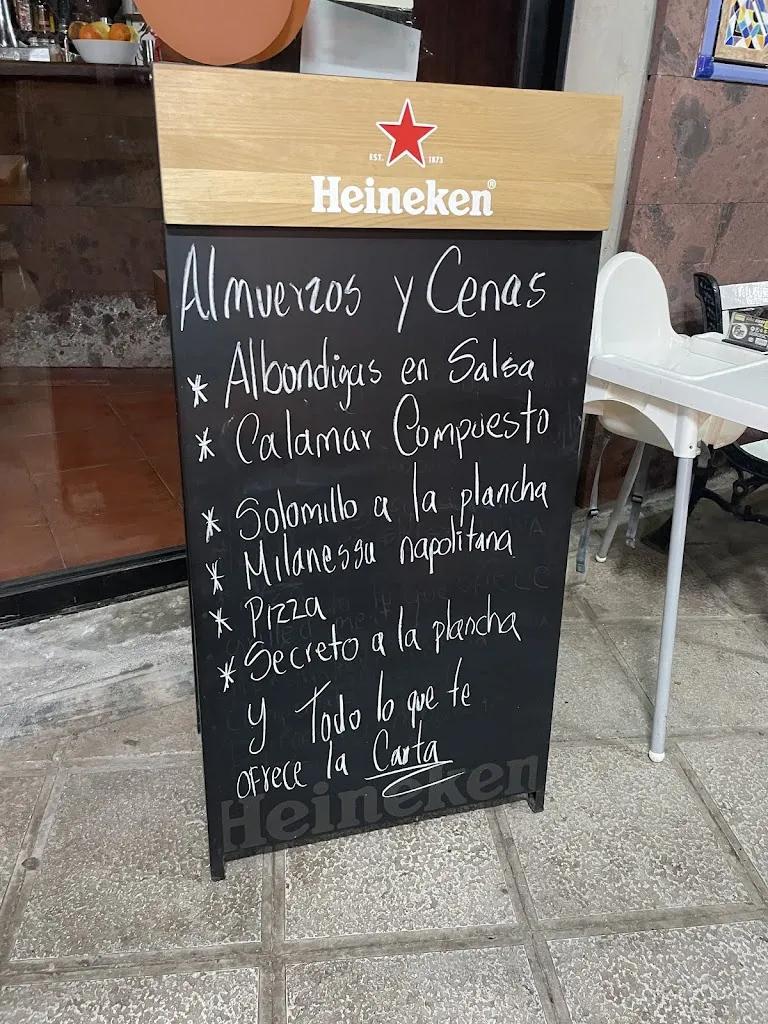 EST. 1873
Heineken®
Almuerzos y Cenas
* Albondigas en Salsa
* Calamar Compuesto
* Solomillo a la plancha
* Milanessa napolitana
* Pizza
* Secreto a la plancha
y Todo lo que te
ofrece la Carta
Heineken